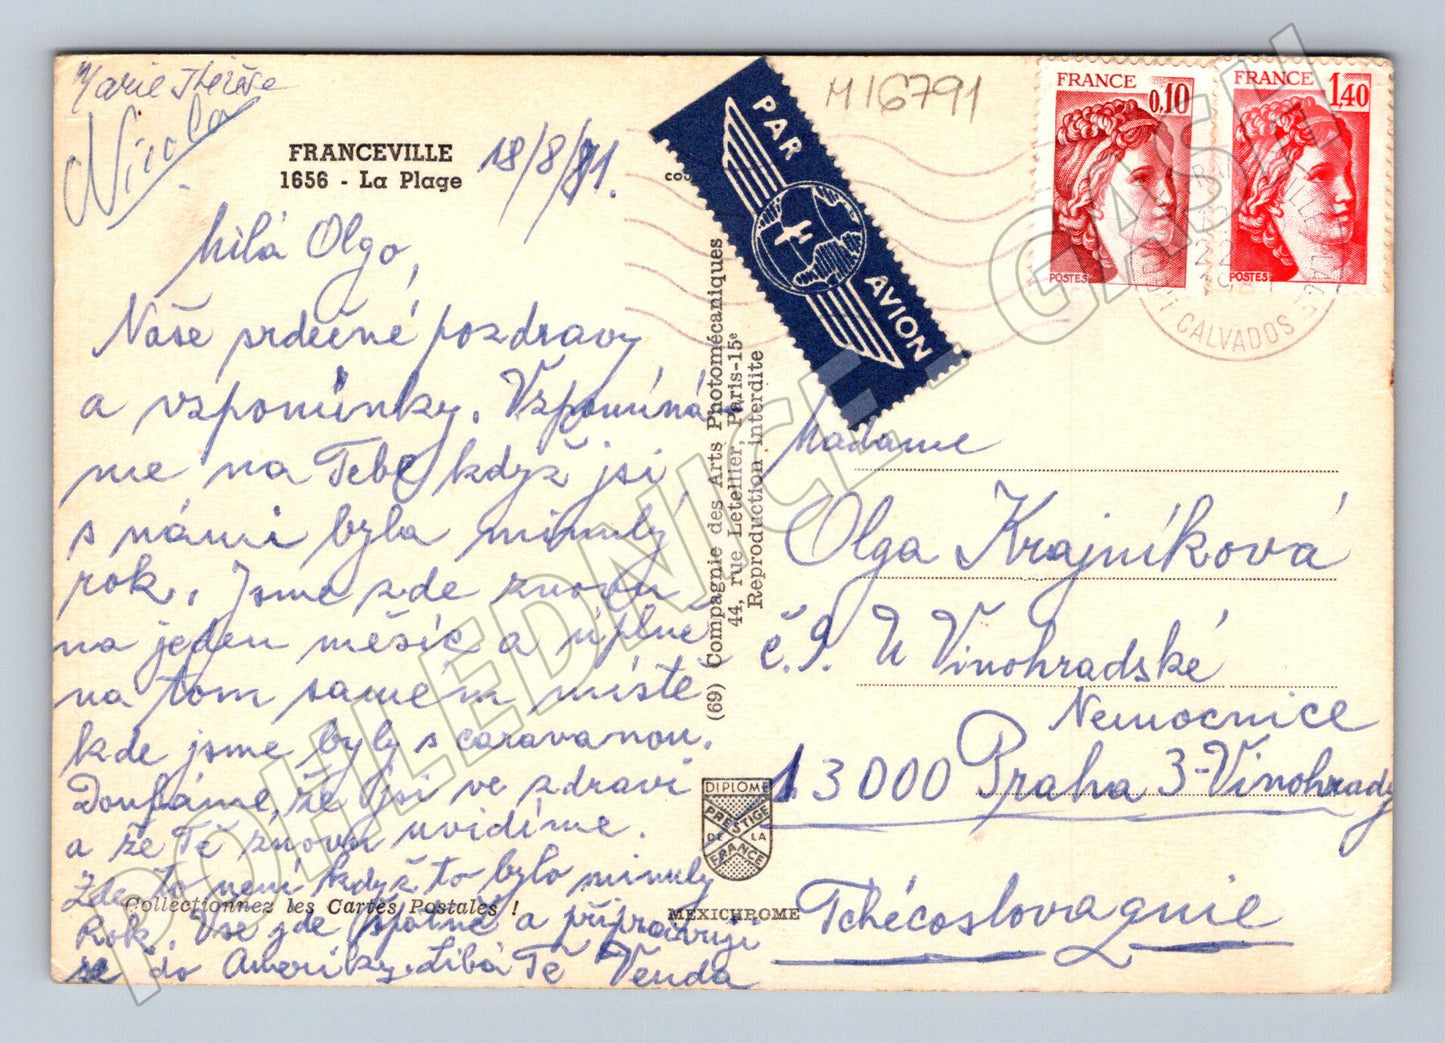 Marie Thérèse
Nicola
M 16791
FRANCEVILLE
1656 - La Plage
18/8/81.
Milá Olgo,
Naše srdečné pozdravy
a vzpomínky. Vzpomíná-
me na Tebe když jsi
s námi byla minulý
rok. Jsme zde znovu
na jeden měsíc a úplně
na tom samém místě
kde jsme byly s caravanou.
Doufáme, že jsi ve zdraví
a že Tě znovu uvidíme.
Zde to není když to bylo minulý
Rok. Vse jde špatně a připravuji
se do Ameriky. Líbá Tě Venda
Collectionnez les Cartes Postales !
(69) Compagnie des Arts Photomécaniques
44, rue Letellier, Paris-15e
Reproduction interdite
DIPLOME
PRESTIGE
DE LA
FRANCE
MEXICHROME
PAR AVION
FRANCE
0,10
POSTES
FRANCE
1,40
POSTES
22
CALVADOS
Madame
Olga Krajníková
č.9. U Vinohradské
Nemocnice
13000 Praha 3-Vinohrady
Tchécoslovaqnie
POHLEDNICE I GASH